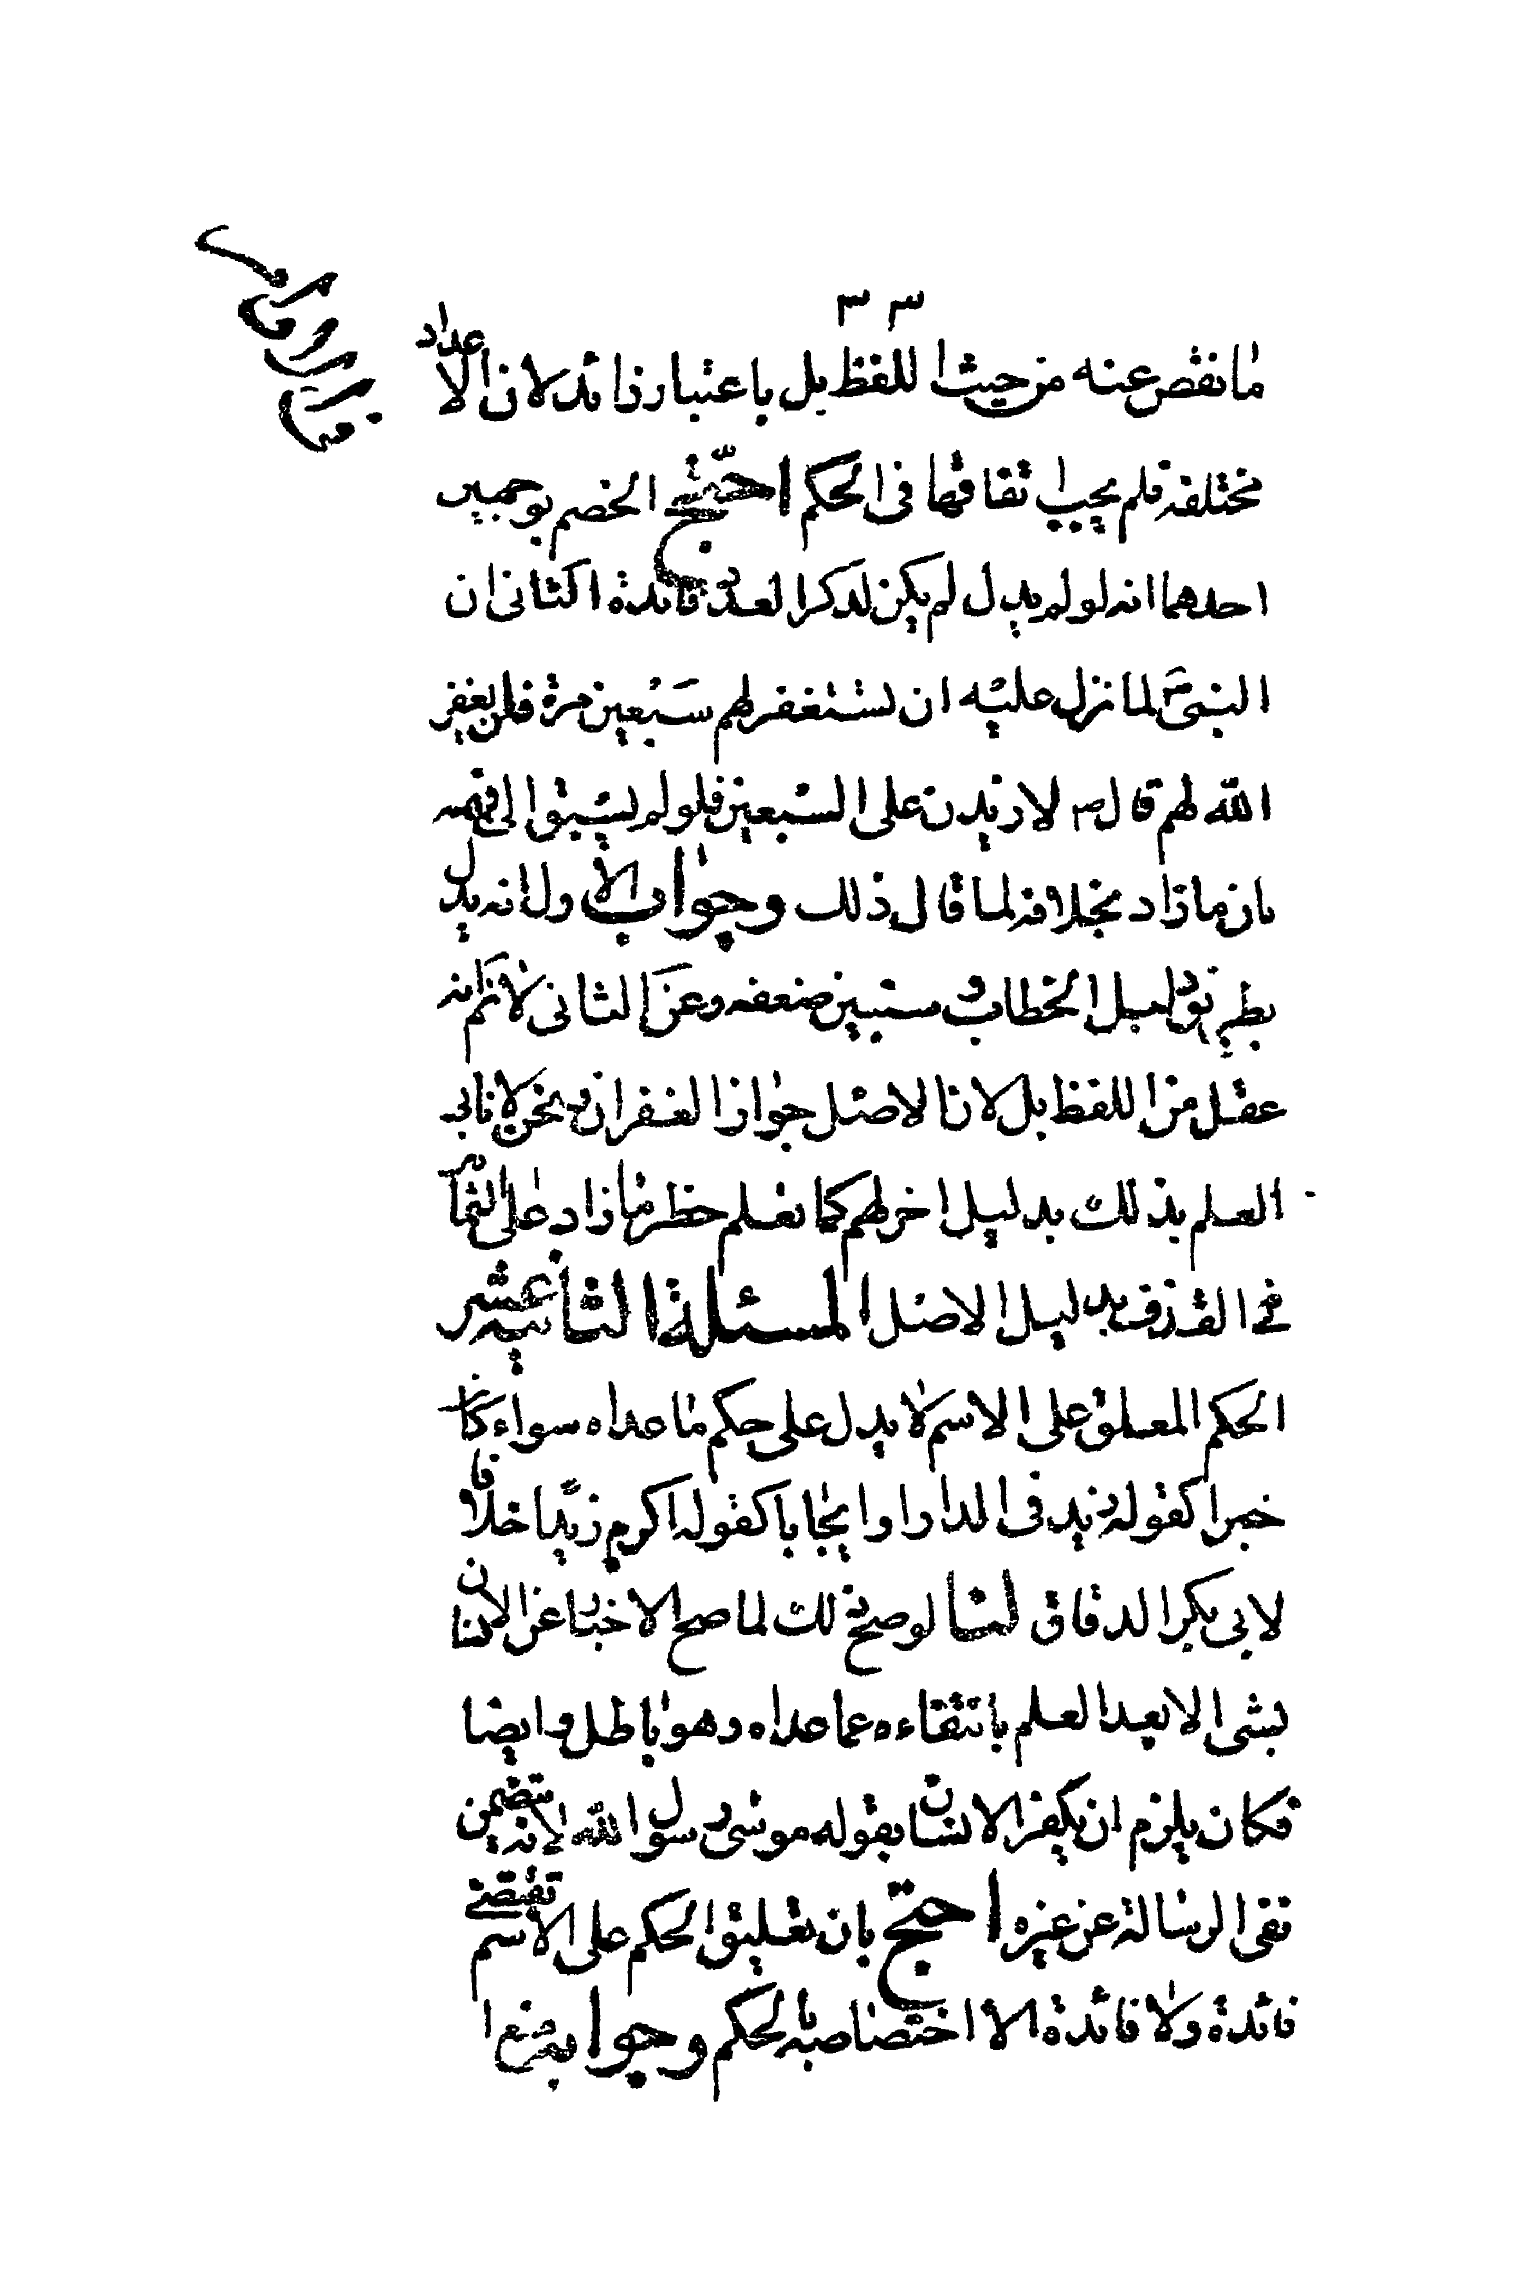 ٣٣
ما نقص عنه من حيث اللفظ بل باعتبار زائد لان الاعداد
مختلفة فلم يجب اتفاقها في الحكم احتج الخصم بوجهين
احدهما انه لو لم يدل لم يكن لذكر العدد فائدة الثاني ان
النبي ص لما نزل عليه ان تستغفر لهم سبعين مرة فلن يغفر
الله لهم قال ص لازيدن على السبعين فلو لم يسبق الى فهمه
بان ما زاد بخلافه لما قال ذلك وجواب الاول انه يدل
بطريق دليل الخطاب وسنبين ضعفه وعن الثاني لا نم انه
عقل من اللفظ بل لان الاصل جواز الغفران ونحن لا نابى
العلم بذلك بدليل اخر لهم كما نعلم حظر ما زاد على الثمانين
في القذف بدليل الاصل المسئلة الثانية عشر
الحكم المعلق على الاسم لا يدل على حكم ما عداه سواء كان
خبرا كقوله زيد في الدار او ايجابا كقوله اكرم زيدا خلافا
لابي بكر الدقاق لنا لو صح ذلك لما صح الاخبار عن الانسان
بشى الا بعد العلم بانتقاءه عما عداه وهو باطل وايضا
فكان يلزم ان يكفر الانسان بقوله موسى رسول الله لانه يتضمن
نفى الرسالة عن غيره احتج بان تعليق الحكم على الاسم تقتضى
فائدة ولا فائدة الا اختصاصه بالحكم وجوابه منع ا